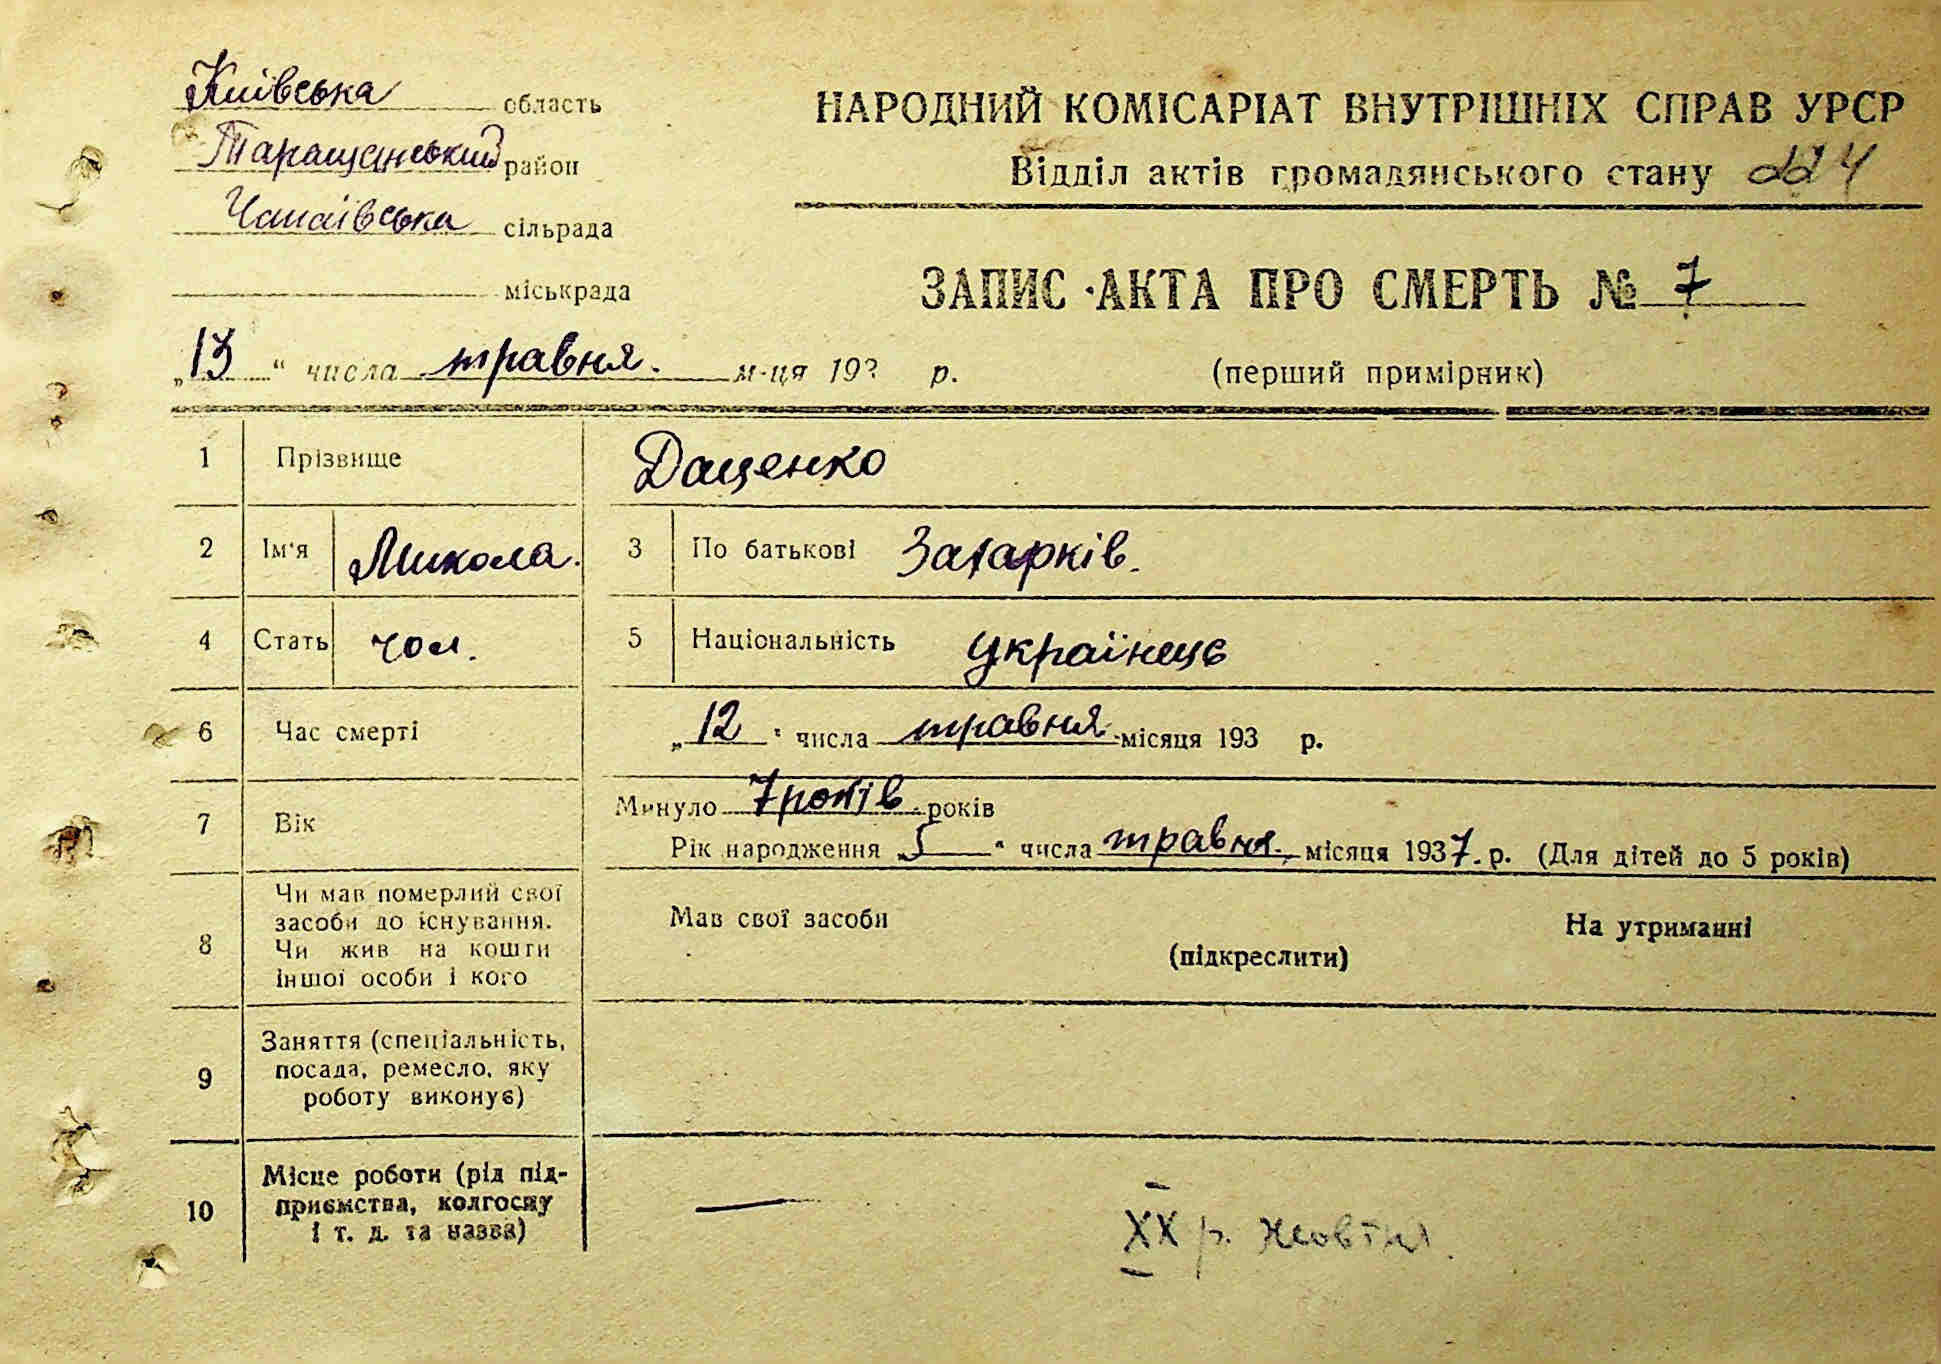 Київська область
НАРОДНИЙ КОМІСАРІАТ ВНУТРІШНІХ СПРАВ УРСР
Таращанський район
Відділ актів громадянського стану 224
Чапаївська сільрада
міськрада
ЗАПИС АКТА ПРО СМЕРТЬ № 7
„13“ числа травня. м-ця 193 р.
(перший примірник)
1 Прізвище Даценко
2 Ім'я Микола. 3 По батькові Захарків.
4 Стать чол. 5 Національність українець
6 Час смерті „12“ числа травня місяця 193 р.
7 Вік Минуло 7 років років
Рік народження „5“ числа травня місяця 1937. р. (Для дітей до 5 років)
8 Чи мав померлий свої
засоби до існування.
Чи жив на кошти
іншої особи і кого
Мав свої засоби
(підкреслити)
На утриманні
9 Заняття (спеціальність,
посада, ремесло, яку
роботу виконує)
10 Місце роботи (рід під-
приємства, колгоспу
і т. д. та назва)
—
XX р. Жовтня.